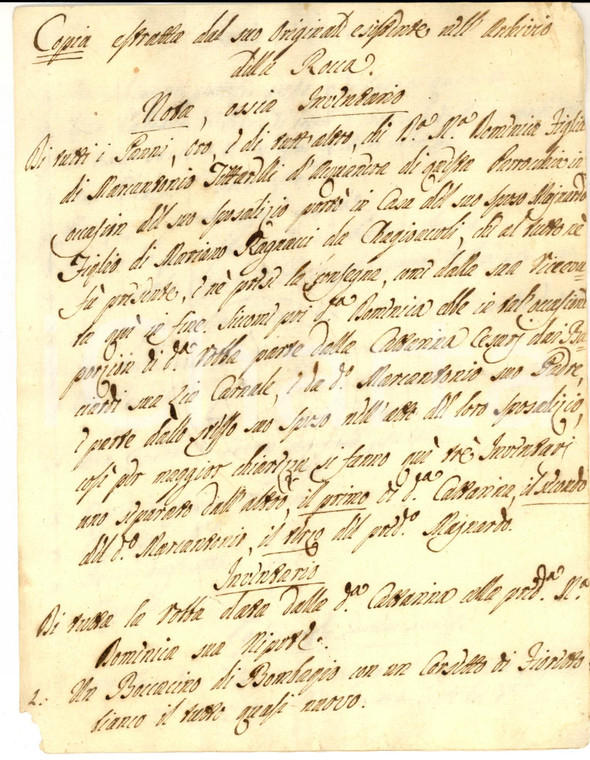 Copia estratta dal suo Originale esistente nell' Archivio
della Rocca.
Nota, ossia Inventario
Di tutti i Panni, oro, e di tutt' altro, di D.ª M.ª Domenica Figlia
di Marcantonio di questa Parrocchia in
occasion del suo sposalizio portò in Casa del suo sposo Majnardo
Figlio di Mariano Ragnacci da che al tutto nè
fù presente, e nè prese la consegna, come dalla sua ricevu-
ta quì in fine. Siccome poi d.ª Domenica ebbe in tal' occasione
porzion di d.ª robba parte dalla Cattarina Cesarj
sua Zia Carnale, e da d.º Marcantonio suo Padre,
e parte dallo stesso suo sposo nell' atto del loro sposalizio,
così per maggior chiarezza si fanno quì trè Inventari
uno separato dall' altro, il primo di d.ª Cattarina, il secondo
del d.º Marcantonio, il terzo del pred.º Majnardo.
Inventario
Di tutta la robba data dalla d.ª Cattarina alla pred.ª M.ª
Domenica sua Nipote.
Un di Bombagio con un Corsetto di
bianco il tutto quasi nuovo.